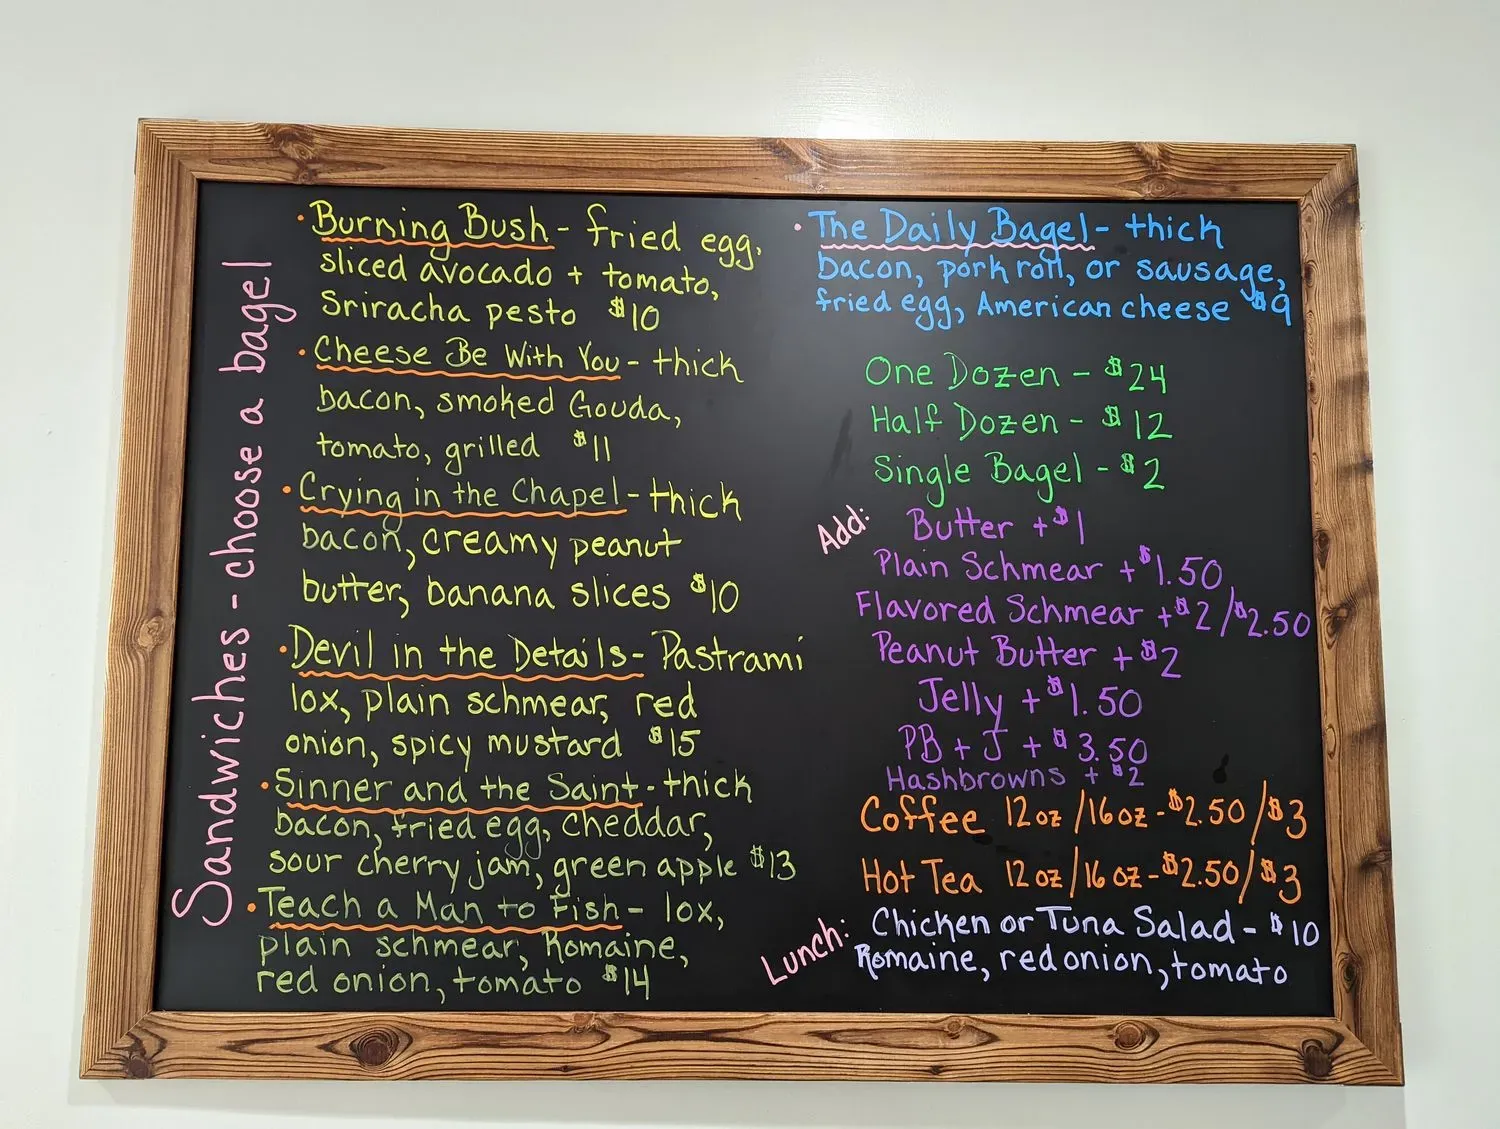 Sandwiches - choose a bagel
· Burning Bush - fried egg,
sliced avocado + tomato,
Sriracha pesto $10
· Cheese Be With You - thick
bacon, smoked Gouda,
tomato, grilled $11
· Crying in the Chapel - thick
bacon, creamy peanut
butter, banana slices $10
· Devil in the Details - Pastrami
lox, plain schmear, red
onion, spicy mustard $15
· Sinner and the Saint - thick
bacon, fried egg, cheddar,
sour cherry jam, green apple $13
· Teach a Man to Fish - lox,
plain schmear, Romaine,
red onion, tomato $14
· The Daily Bagel - thick
bacon, pork roll, or sausage,
fried egg, American cheese $9
One Dozen - $24
Half Dozen - $12
Single Bagel - $2
Add: Butter + $1
Plain Schmear + $1.50
Flavored Schmear + $2/$2.50
Peanut Butter + $2
Jelly + $1.50
PB + J + $3.50
Hashbrowns + $2
Coffee 12oz/16oz - $2.50/$3
Hot Tea 12oz/16oz - $2.50/$3
Lunch: Chicken or Tuna Salad - $10
Romaine, red onion, tomato